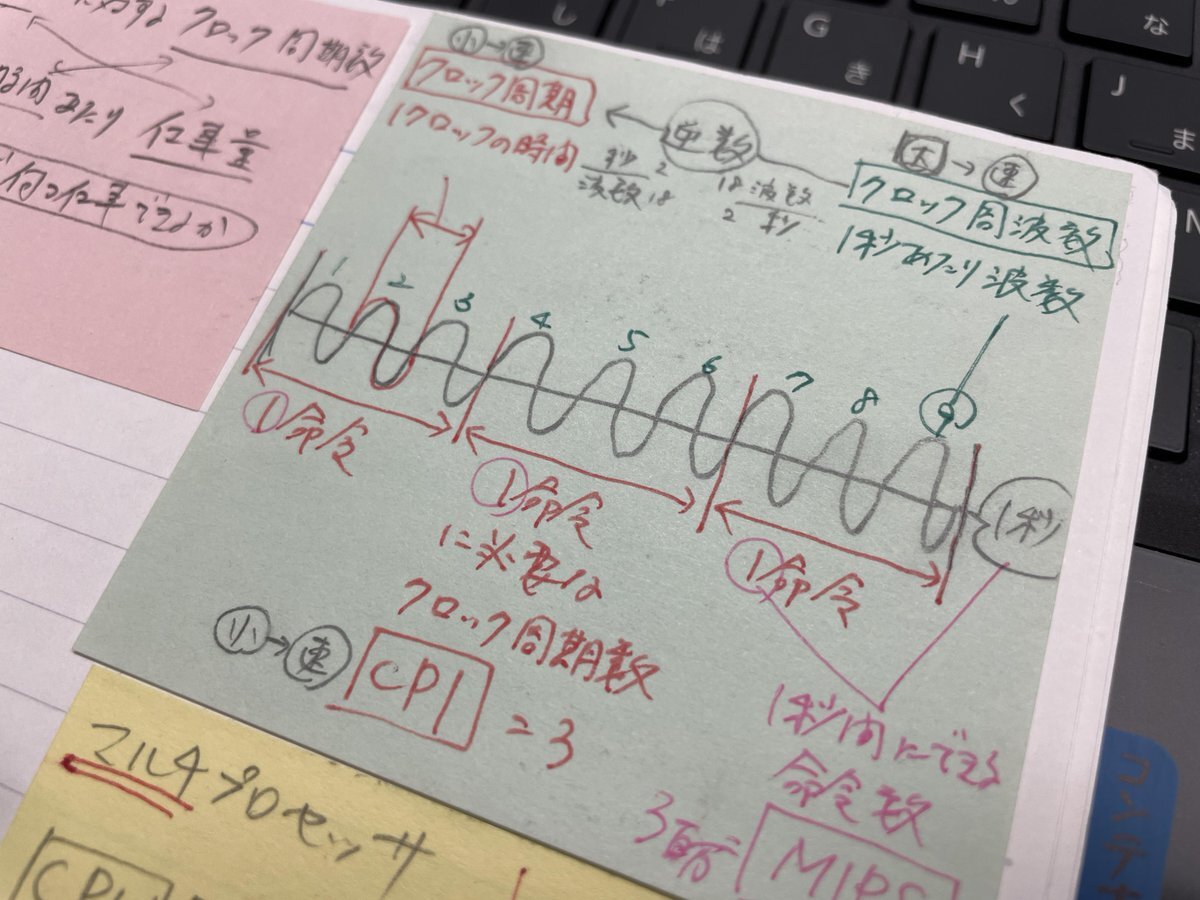 クロック周期数
あたり 仕事量
仕事できるか
小→速
クロック周期
1クロックの時間
逆数
秒
波数
2
18
18
2
波数
秒
大→速
クロック周波数
1秒あたり波数
1 2 3 4 5 6 7 8 9
①命令
①命令
に必要な
クロック周期数
①命令
1秒
小→速
CPI
=3
1秒間にできる
命令数
3百万
MIPS
マルチプロセッサ
CPU
コンテ
し
は
G
き
H
く
J
ま
な
N